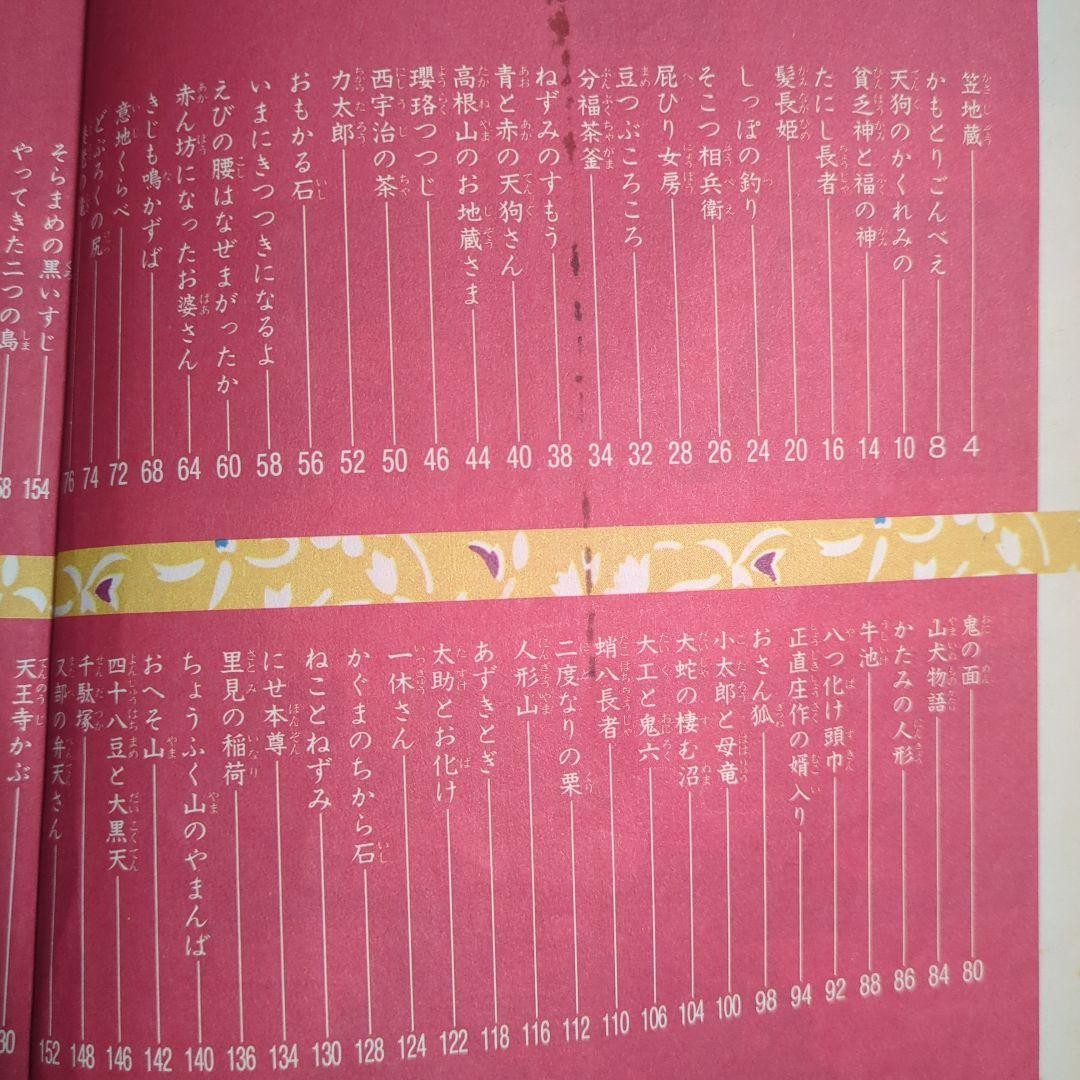 笠地蔵 4
かもとりごんべえ 8
天狗のかくれみの 10
貧乏神と福の神 14
たにし長者 16
髪長姫 20
しっぽの釣り 24
そこつ相兵衛 26
屁ひり女房 28
豆つぶころころ 32
分福茶釜 34
ねずみのすもう 38
青と赤の天狗さん 40
高根山のお地蔵さま 44
瓔珞つつじ 46
西宇治の茶 50
力太郎 52
おもかる石 56
いまにきつつきになるよ 58
えびの腰はなぜまがったか 60
赤ん坊になったお婆さん 64
きじも鳴かずば 68
意地くらべ 72
どぶろくの尻 74
76
そらまめの黒いすじ 154
やってきた二つの島
鬼の面 80
山犬物語 84
かたみの人形 86
牛池 88
八つ化け頭巾 92
正直庄作の婿入り 94
おさん狐 98
小太郎と母竜 100
大蛇の棲む沼 104
大工と鬼六 106
蛸八長者 110
二度なりの栗 112
人形山 116
あずきとぎ 118
太助とお化け 122
一休さん 124
かぐまのちから石 128
ねことねずみ 130
にせ本尊 134
里見の稲荷 136
ちょうふく山のやまんば 140
おへそ山 142
四十八豆と大黒天 146
千駄塚 148
又部の弁天さん 152
天王寺かぶ